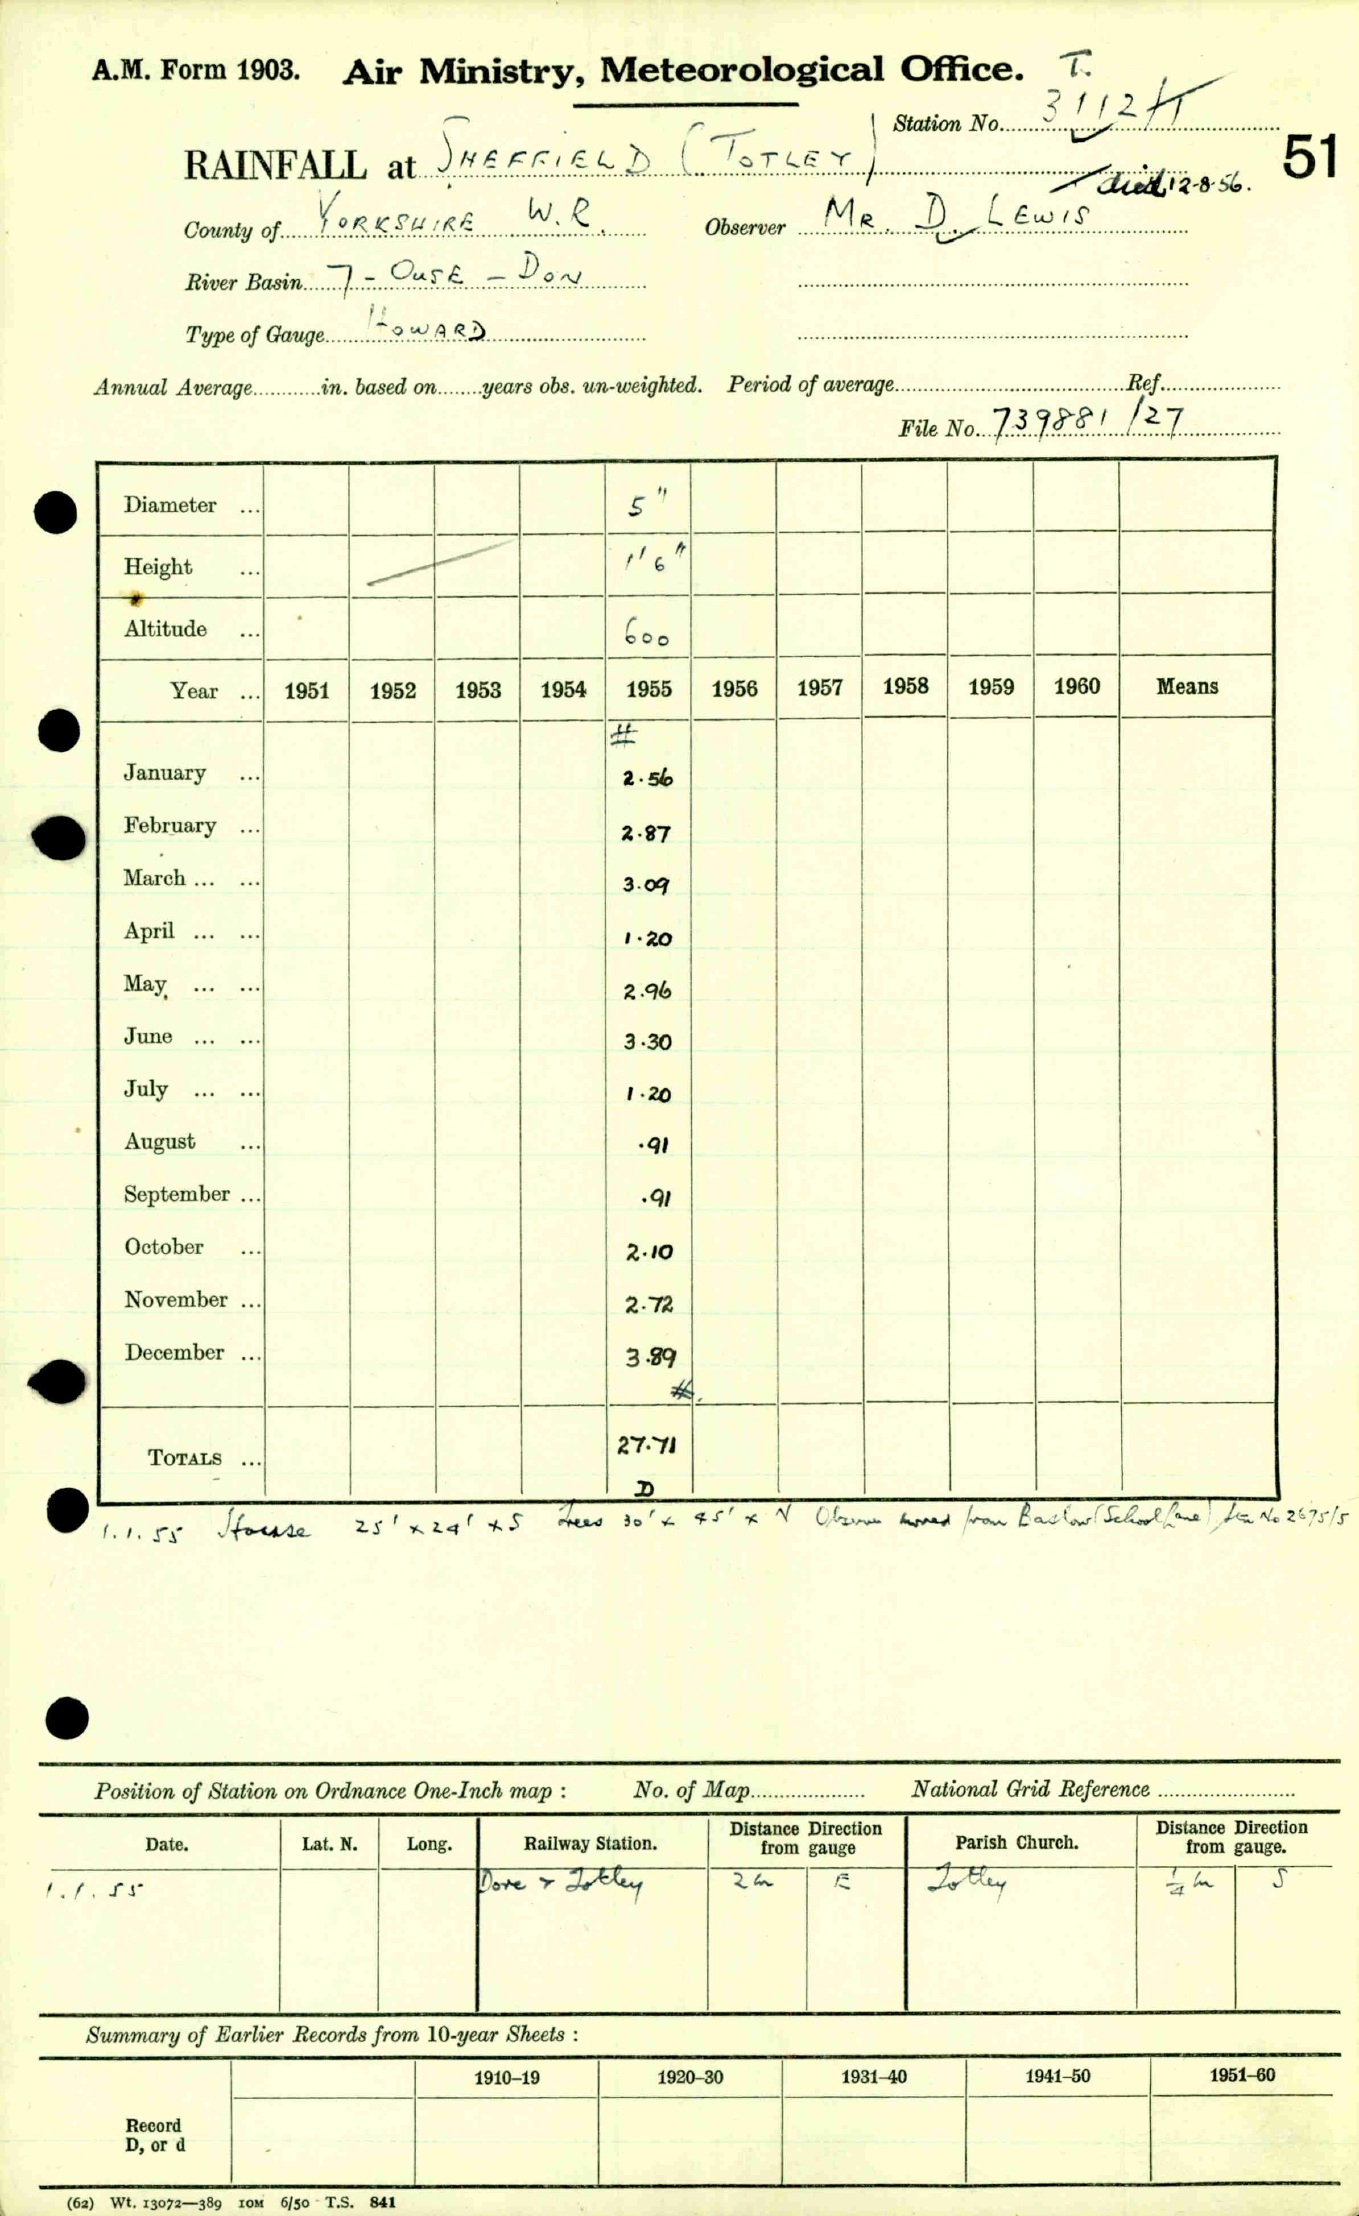 A.M. Form 1903. Air Ministry, Meteorological Office. T.
Station No. 3112/1
51
RAINFALL at SHEFFIELD (TOTLEY)
died 12-8-56.
County of YORKSHIRE W.R. Observer MR. D. LEWIS
River Basin 7 - OUSE - DON
Type of Gauge HOWARD
Annual Average in. based on years obs. un-weighted. Period of average Ref.
File No. 739881/27
Diameter ... 5"
Height ... 1' 6"
Altitude ... 600
Year ... 1951 1952 1953 1954 1955 1956 1957 1958 1959 1960 Means
#
January ... 2.56
February ... 2.87
March ... ... 3.09
April ... ... 1.20
May ... ... 2.96
June ... ... 3.30
July ... ... 1.20
August ... .91
September ... .91
October ... 2.10
November ... 2.72
December ... 3.89
#.
TOTALS ... 27.71
D
1.1.55 House 25' x 24' x S Trees 30' x 45' x N Observer moved from Baslow (School Lane) Stn No 2675/5
Position of Station on Ordnance One-Inch map : No. of Map National Grid Reference
Date. Lat. N. Long. Railway Station. Distance Direction from gauge Parish Church. Distance Direction from gauge.
1.1.55 Dore & Totley 2m E Totley 1/4 m S
Summary of Earlier Records from 10-year Sheets :
1910–19 1920–30 1931–40 1941–50 1951–60
Record
D, or d
(62) Wt. 13072—389 10M 6/50 T.S. 841